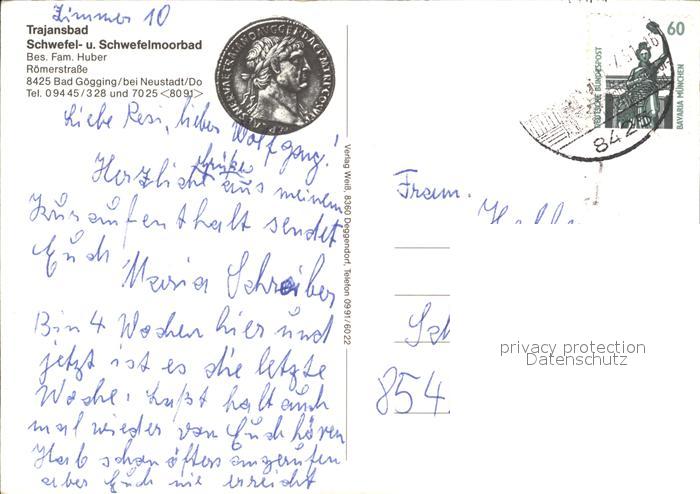 Zimmer 10
Trajansbad
Schwefel- u. Schwefelmoorbad
Bes. Fam. Huber
Römerstraße
8425 Bad Gögging/bei Neustadt/Do
Tel. 09445/328 und 7025 <8091>
Liebe Resi, lieber Wolfgang!
Herzliche Grüße aus meinem
Kuraufenthalt sendet
Euch
Maria Schreiber
Bin 4 Wochen hier und
jetzt ist es die letzte
Woche. Laßt halt auch
mal wieder von Euch hören
Hab schon öfters angerufen
aber Euch nie erreicht
Verlag Weiß, 8360 Deggendorf, Telefon 0991/6022
60
DEUTSCHE BUNDESPOST
BAVARIA MÜNCHEN
842
Fram.
Sch
854
privacy protection
Datenschutz